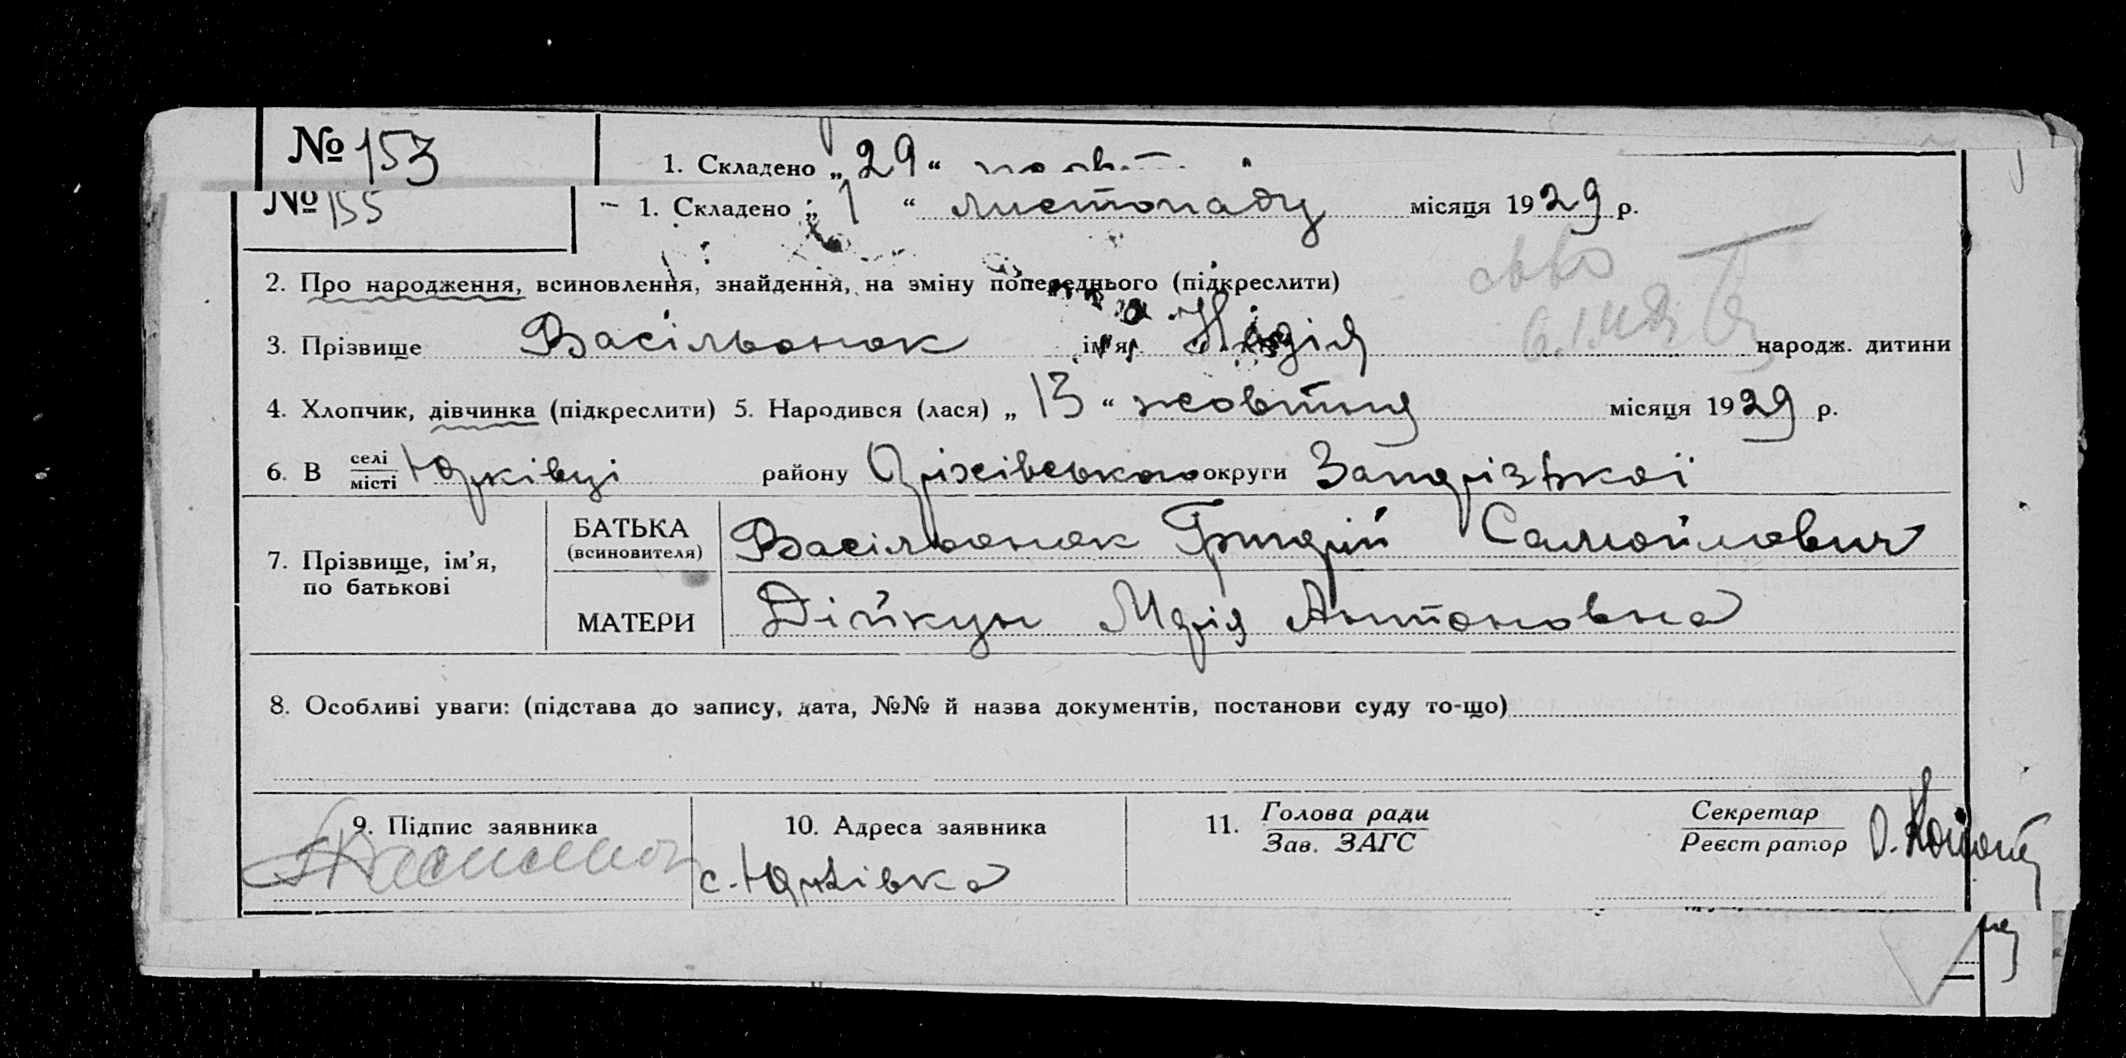 № 153
1. Складено „ 29 “
№ 155
1. Складено „ 1 “ листопаду місяця 1929 р.
2. Про народження, всиновлення, знайдення, на зміну попереднього (підкреслити)
3. Прізвище Васільонок ім'я Надія народж. дитини
4. Хлопчик, дівчинка (підкреслити) 5. Народився (лася) „ 13 “ жовтня місяця 1929 р.
6. В селі/місті Юрківці району Оріхівського округи Запорізької
7. Прізвище, ім'я, по батькові
БАТЬКА (всиновителя) Васільонок Григорій Самойлович
МАТЕРИ Дійкун Марія Антоновна
8. Особливі уваги: (підстава до запису, дата, №№ й назва документів, постанови суду то-що)
9. Підпис заявника
10. Адреса заявника
с. Юрківка
11. Голова ради
Зав. ЗАГС
Секретар
Реєстратор